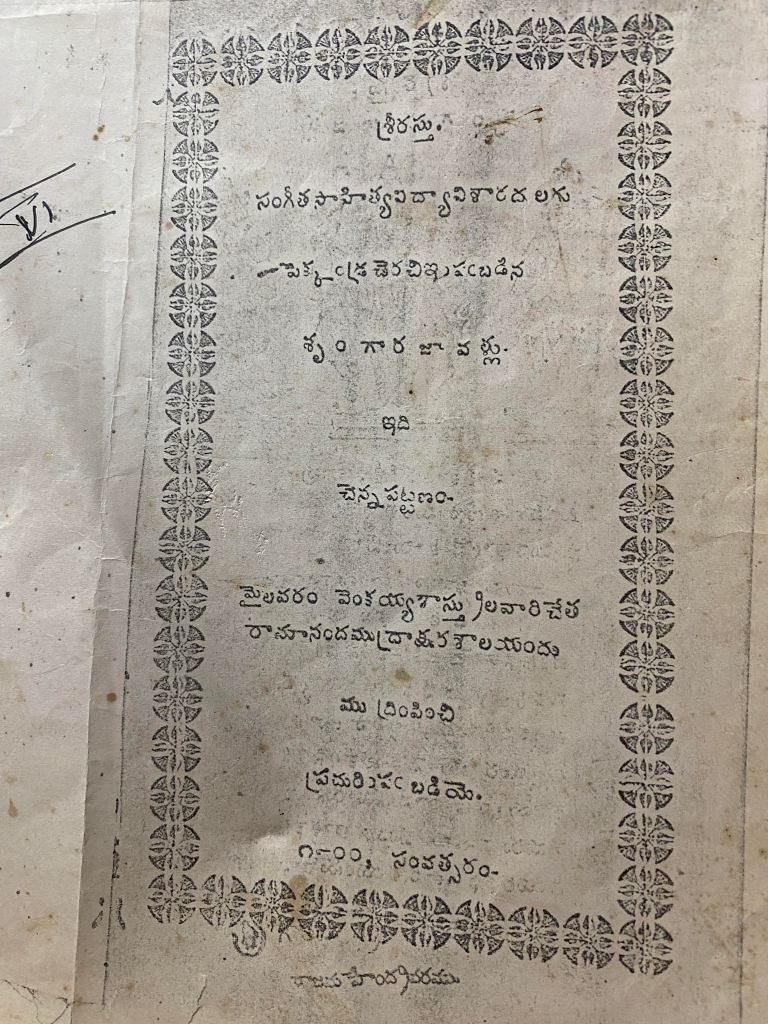 శ్రీరస్తు.
సంగీతసాహిత్యవిద్యావిశారదలగు
పెక్కండ్రచెరచిఇంపఁబడిన
శృంగారజావళ్లు.
ఇది
చెన్నపట్టణం-
మైలవరం వెంకయ్యశాస్త్రిలవారిచేత
రామానందముద్రాక్షరశాలయందు
ముద్రింపించి
ప్రచురింపఁబడియె.
సంవత్సరం-
రాజమహేంద్రవరము